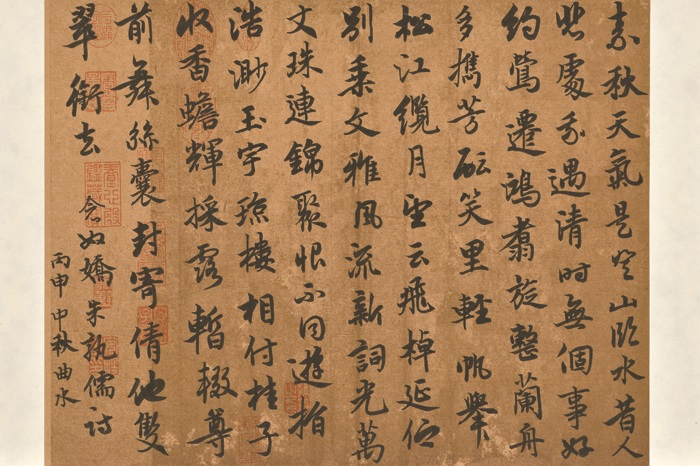 素秋天氣是登山臨水昔人
此處幾遇清時無個事好
約鶯遷鴻翥旋整蘭舟
多攜芳醞笑里輕帆舉
松江纜月望云飛棹延佇
別乘文雅風流新詞光萬
丈珠連錦聚恨不同遊拍
浩渺玉宇瓊樓相付桂子
收香蟾輝採露暫輟尊
前舞絲囊封寄倩他雙
翠銜去
念奴嬌朱敦儒詩
丙申中秋曲水